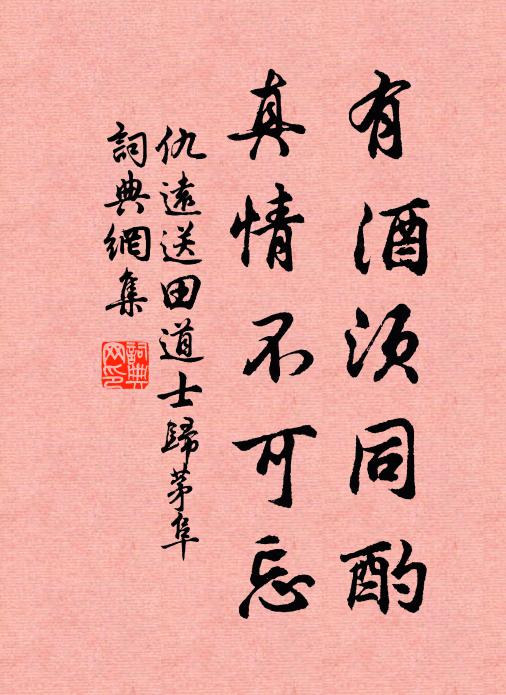 有酒须同酌
真情不可忘
仇遠送田道士歸茅阜
詞典網集
詞典網印